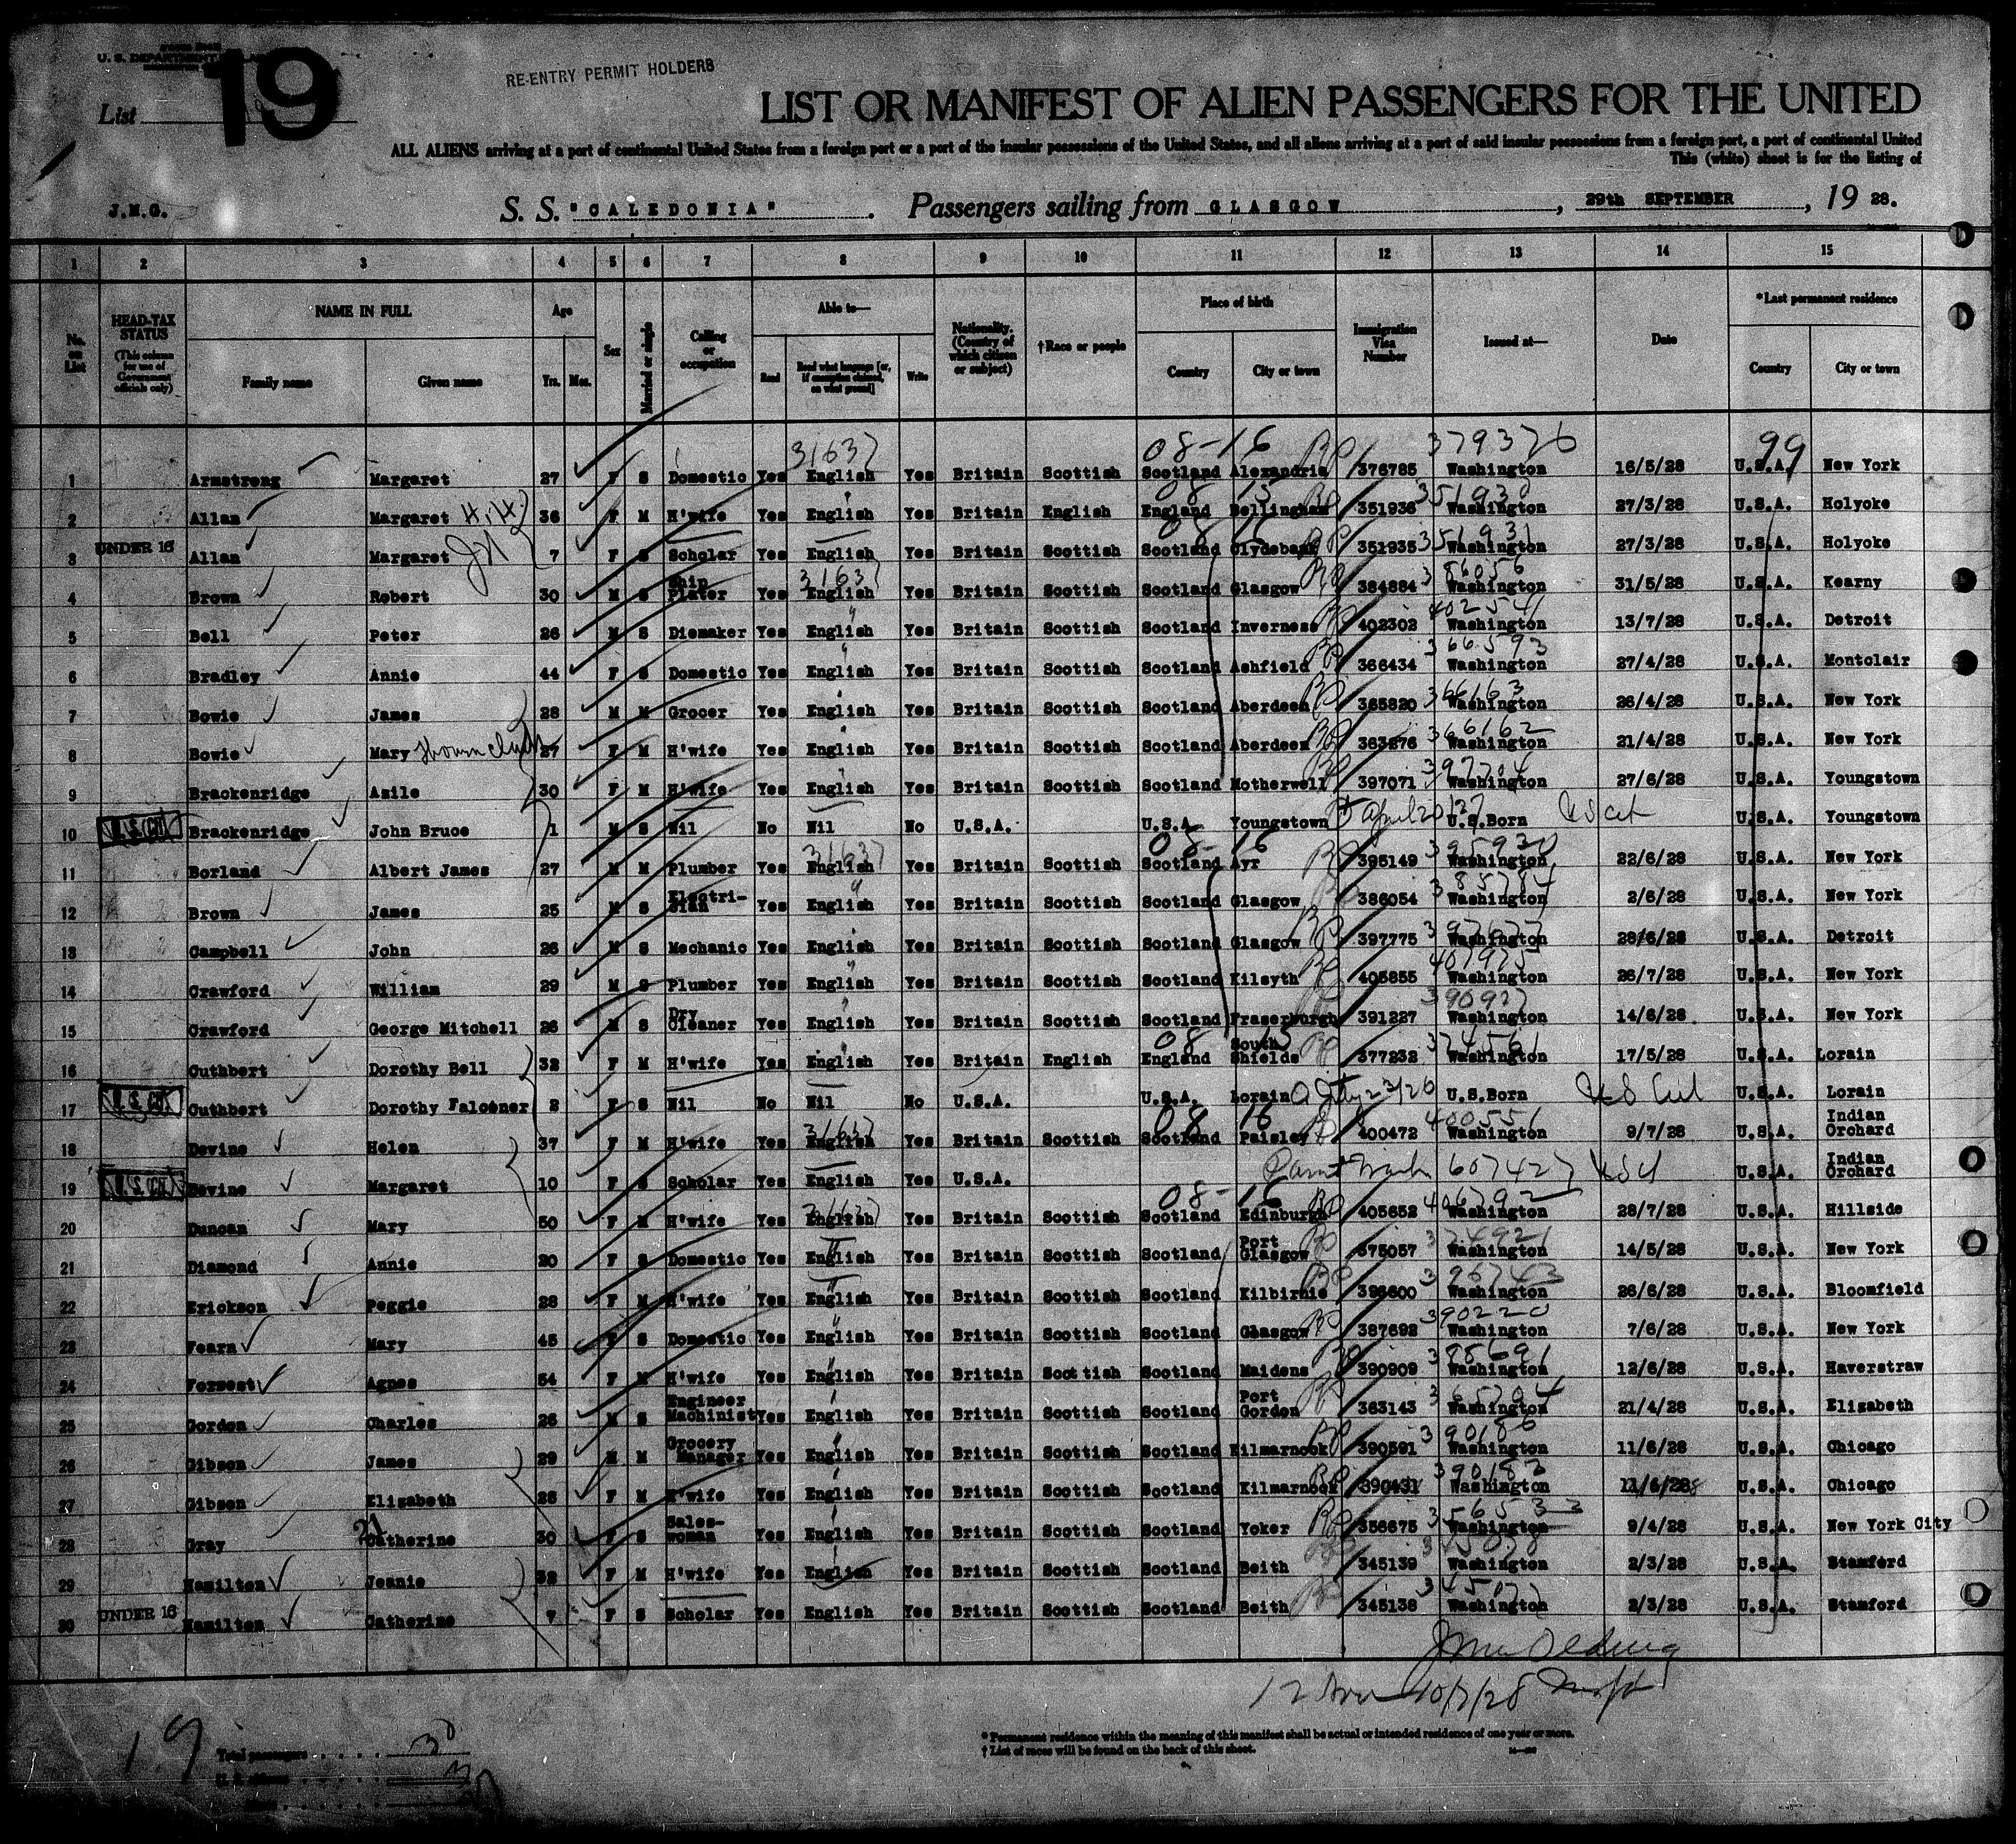 U. S. DEPARTMENT
19
List
RE-ENTRY PERMIT HOLDERS
LIST OR MANIFEST OF ALIEN PASSENGERS FOR THE UNITED
ALL ALIENS arriving at a port of continental United States from a foreign port or a port of the insular possessions of the United States, and all aliens arriving at a port of said insular possessions from a foreign port, a port of continental United
This (white) sheet is for the listing of
J.M.G.
S. S. "CALEDONIA" . Passengers sailing from GLASGOW , 29th SEPTEMBER , 19 28.
1 2 3 4 5 6 7 8 9 10 11 12 13 14 15
No. on List
HEAD-TAX STATUS (This column for use of Government officials only)
NAME IN FULL Family name Given name
Age Yrs. Mos.
Sex
Married or single
Calling or occupation
Able to— Read Read what language [or, if exemption claimed, on what ground] Write
Nationality. (Country of which citizen or subject)
†Race or people
Place of birth Country City or town
Immigration Visa Number
Issued at—
Date
*Last permanent residence Country City or town
31637 08-16 379376 99
1 Armstrong Margaret 27 F S Domestic Yes English Yes Britain Scottish Scotland Alexandria 376785 Washington 16/5/28 U.S.A. New York
08 15 351930
2 Allan Margaret 36 F M H'wife Yes English Yes Britain English England Bellingham 351936 Washington 27/3/28 U.S.A. Holyoke
08 16 351931
3 UNDER 16 Allan Margaret 7 F S Scholar Yes English Yes Britain Scottish Scotland Clydebank 351935 Washington 27/3/28 U.S.A. Holyoke
31637 386056
4 Brown Robert 30 M S Ship Plater Yes English Yes Britain Scottish Scotland Glasgow 384884 Washington 31/5/28 U.S.A. Kearny
402541
5 Bell Peter 26 M S Diemaker Yes English Yes Britain Scottish Scotland Inverness 402302 Washington 13/7/28 U.S.A. Detroit
366593
6 Bradley Annie 44 F S Domestic Yes English Yes Britain Scottish Scotland Ashfield 366434 Washington 27/4/28 U.S.A. Montclair
366163
7 Bowie James 28 M M Grocer Yes English Yes Britain Scottish Scotland Aberdeen 365820 Washington 26/4/28 U.S.A. New York
366162
8 Bowie Mary 27 F M H'wife Yes English Yes Britain Scottish Scotland Aberdeen 363276 Washington 21/4/28 U.S.A. New York
397204
9 Brackenridge Azile 30 F M H'wife Yes English Yes Britain Scottish Scotland Motherwell 397071 Washington 27/6/28 U.S.A. Youngstown
10 U.S.CIT Brackenridge John Bruce 1 M S Nil No Nil No U.S.A. U.S.A. Youngstown April 20/27 U.S.Born US cit U.S.A. Youngstown
31637 08-16 395930
11 Borland Albert James 27 M M Plumber Yes English Yes Britain Scottish Scotland Ayr 395149 Washington 22/6/28 U.S.A. New York
385784
12 Brown James 25 M S Electri-cian Yes English Yes Britain Scottish Scotland Glasgow 386054 Washington 2/6/28 U.S.A. New York
397677
13 Campbell John 26 M S Mechanic Yes English Yes Britain Scottish Scotland Glasgow 397775 Washington 28/6/28 U.S.A. Detroit
407975
14 Crawford William 29 M S Plumber Yes English Yes Britain Scottish Scotland Kilsyth 405855 Washington 26/7/28 U.S.A. New York
390927
15 Crawford George Mitchell 26 M S Dry Cleaner Yes English Yes Britain Scottish Scotland Fraserburgh 391227 Washington 14/6/28 U.S.A. New York
08 15 374561
16 Cuthbert Dorothy Bell 32 F M H'wife Yes English Yes Britain English England South Shields 377232 Washington 17/5/28 U.S.A. Lorain
17 U.S.CIT Cuthbert Dorothy Falconer 2 F S Nil No Nil No U.S.A. U.S.A. Lorain 23/26 U.S.Born US Cit U.S.A. Lorain
31637 08 16 400551
18 Devine Helen 37 F M H'wife Yes English Yes Britain Scottish Scotland Paisley 400472 Washington 9/7/28 U.S.A. Indian Orchard
19 U.S.CIT Devine Margaret 10 F S Scholar Yes English Yes U.S.A. 607427 U.S.A. Indian Orchard
31637 08-16 406792
20 Duncan Mary 50 F M H'wife Yes English Yes Britain Scottish Scotland Edinburgh 405652 Washington 28/7/28 U.S.A. Hillside
374921
21 Diamond Annie 20 F S Domestic Yes English Yes Britain Scottish Scotland Port Glasgow 375057 Washington 14/5/28 U.S.A. New York
396743
22 Erickson Peggie 28 F M H'wife Yes English Yes Britain Scottish Scotland Kilbirnie 396600 Washington 26/6/28 U.S.A. Bloomfield
390220
23 Fearn Mary 45 F S Domestic Yes English Yes Britain Scottish Scotland Glasgow 387692 Washington 7/6/28 U.S.A. New York
388691
24 Forrest Agnes 54 F M H'wife Yes English Yes Britain Scottish Scotland Maidens 390909 Washington 12/6/28 U.S.A. Haverstraw
365704
25 Gordon Charles 26 M S Engineer Machinist Yes English Yes Britain Scottish Scotland Port Gordon 363143 Washington 21/4/28 U.S.A. Elizabeth
390186
26 Gibson James 29 M M Grocery Manager Yes English Yes Britain Scottish Scotland Kilmarnock 390591 Washington 11/6/28 U.S.A. Chicago
390183
27 Gibson Elizabeth 28 F M H'wife Yes English Yes Britain Scottish Scotland Kilmarnock 390431 Washington 11/6/28 U.S.A. Chicago
356533
28 Gray Catherine 30 F S Sales-woman Yes English Yes Britain Scottish Scotland Yoker 356675 Washington 9/4/28 U.S.A. New York City
345078
29 Hamilton Jeanie 32 F M H'wife Yes English Yes Britain Scottish Scotland Beith 345139 Washington 2/3/28 U.S.A. Stamford
345077
30 UNDER 16 Hamilton Catherine 7 F S Scholar Yes English Yes Britain Scottish Scotland Beith 345138 Washington 2/3/28 U.S.A. Stamford
10/7/28
* Permanent residence within the meaning of this manifest shall be actual or intended residence of one year or more.
† List of races will be found on the back of this sheet.
19
Total passengers . . . . . 30